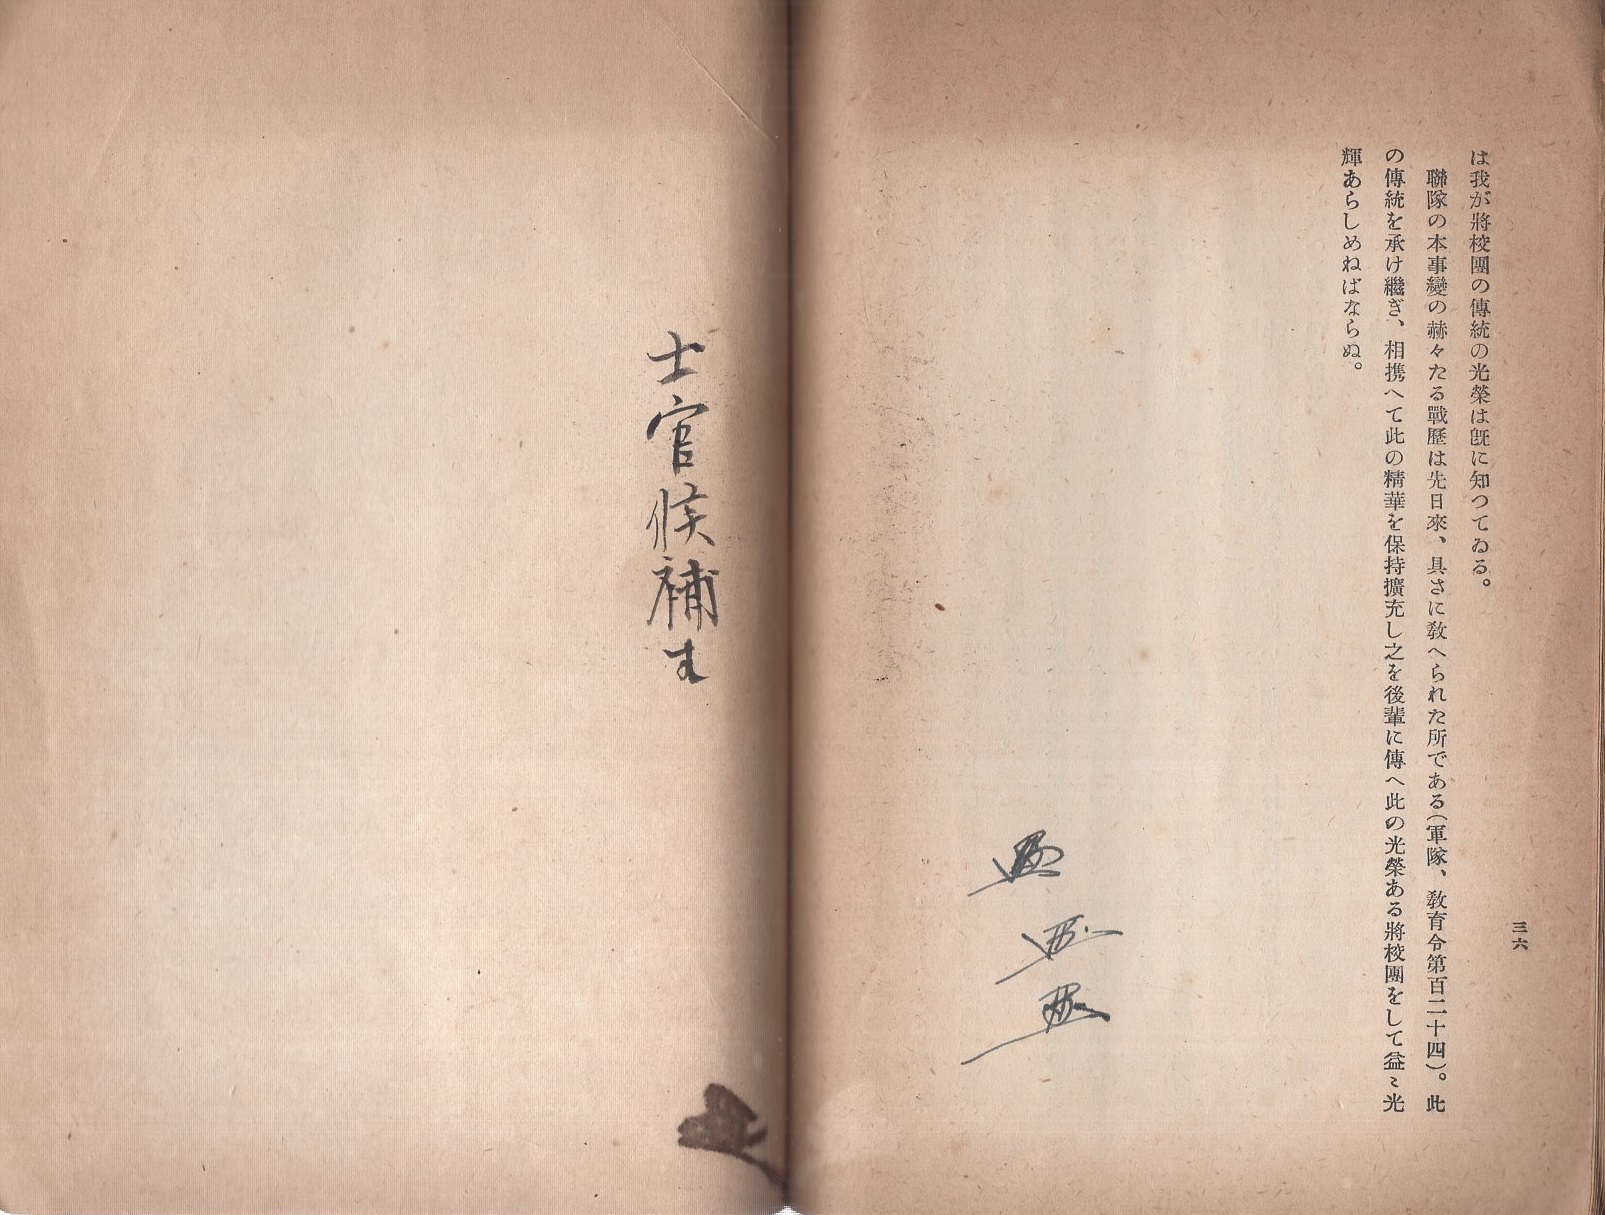 は我が將校團の傳統の光榮は既に知つてゐる。
聯隊の本事變の赫々たる戰歷は先日來、具さに敎へられた所である（軍隊、敎育令第百二十四）。此
の傳統を承け繼ぎ、相携へて此の精華を保持擴充し之を後輩に傳へ此の光榮ある將校團をして益〻光
輝あらしめねばならぬ。
三六
士官候補生